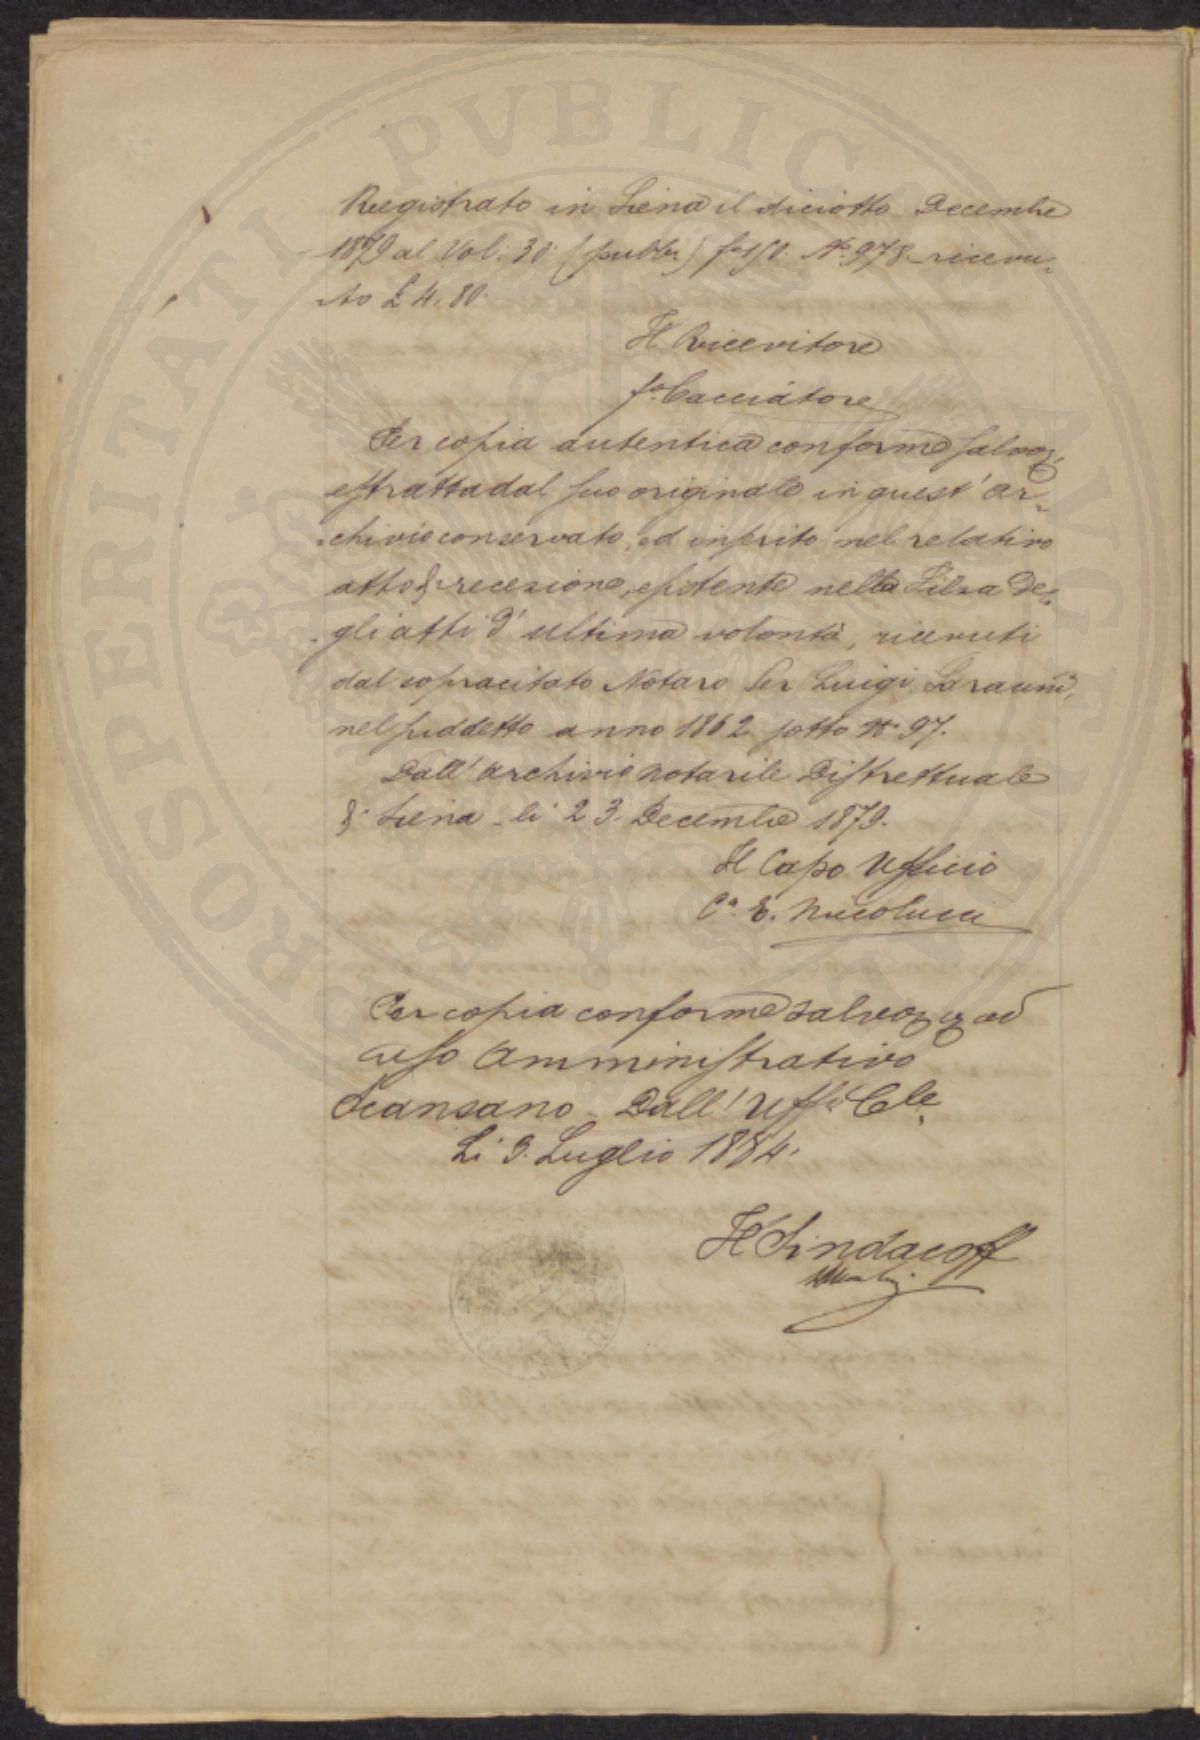 Registrato in Siena il diciotto Decembre
1879 al Vol: 30: (pubbi) fo 150. No. 978. ricevu-
to £ 4. 80.
Il Ricevitore
fo. Cacciatore
Per copia autentica conforme salvo
estratta dal suo originale in quest' Ar-
chivio conservato, ed inserito nel relativo
atto di recezione, esistente nella Filza De-
gli atti d' ultima volontà, ricevuti
dal sopracitato Notaro Ser Luigi
nel suddetto anno 1862 sotto No. 97.
Dall' Archivio Notarile Distrettuale
di Siena - li 23. Decembre 1879.
Il Capo Ufficio
Ca. E. Nicolucci
Per copia conforme salvo ad
uso Amministrativo
Scansano - Dall' Uffo. Cle.
Li 3. Luglio 1884.
Il Sindaco ff
PROSPERITATI PVBLICAE AVGENDAE